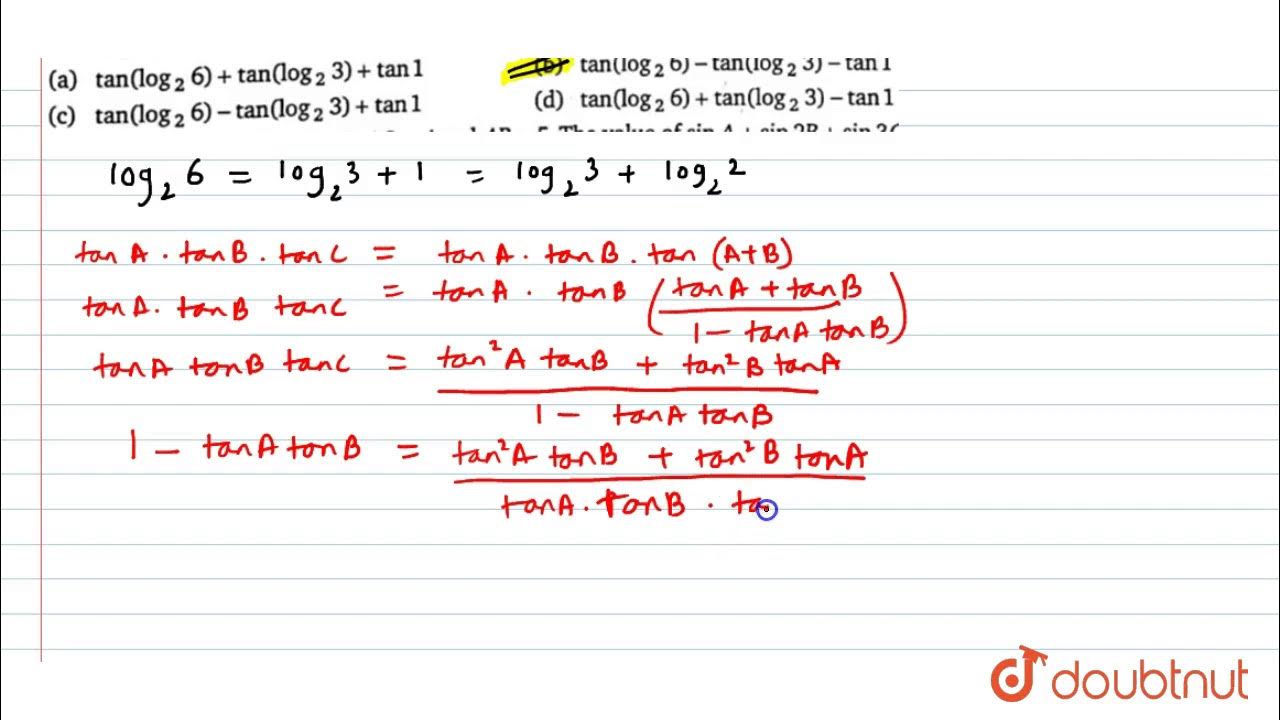 (a) tan(log₂ 6) + tan(log₂ 3) + tan 1
(b) tan(log₂ 6) − tan(log₂ 3) − tan 1
(c) tan(log₂ 6) − tan(log₂ 3) + tan 1
(d) tan(log₂ 6) + tan(log₂ 3) − tan 1
5. The value of sin A + sin 2B + sin 3C
log₂ 6 = log₂ 3 + 1 = log₂ 3 + log₂ 2
tan A . tan B . tan C = tan A . tan B . tan (A+B)
tan A . tan B tan C = tan A . tan B ( (tan A + tan B) / (1 − tan A tan B) )
tan A tan B tan C = (tan² A tan B + tan² B tan A) / (1 − tan A tan B)
1 − tan A tan B = (tan² A tan B + tan² B tan A) / (tan A . tan B . ta
doubtnut